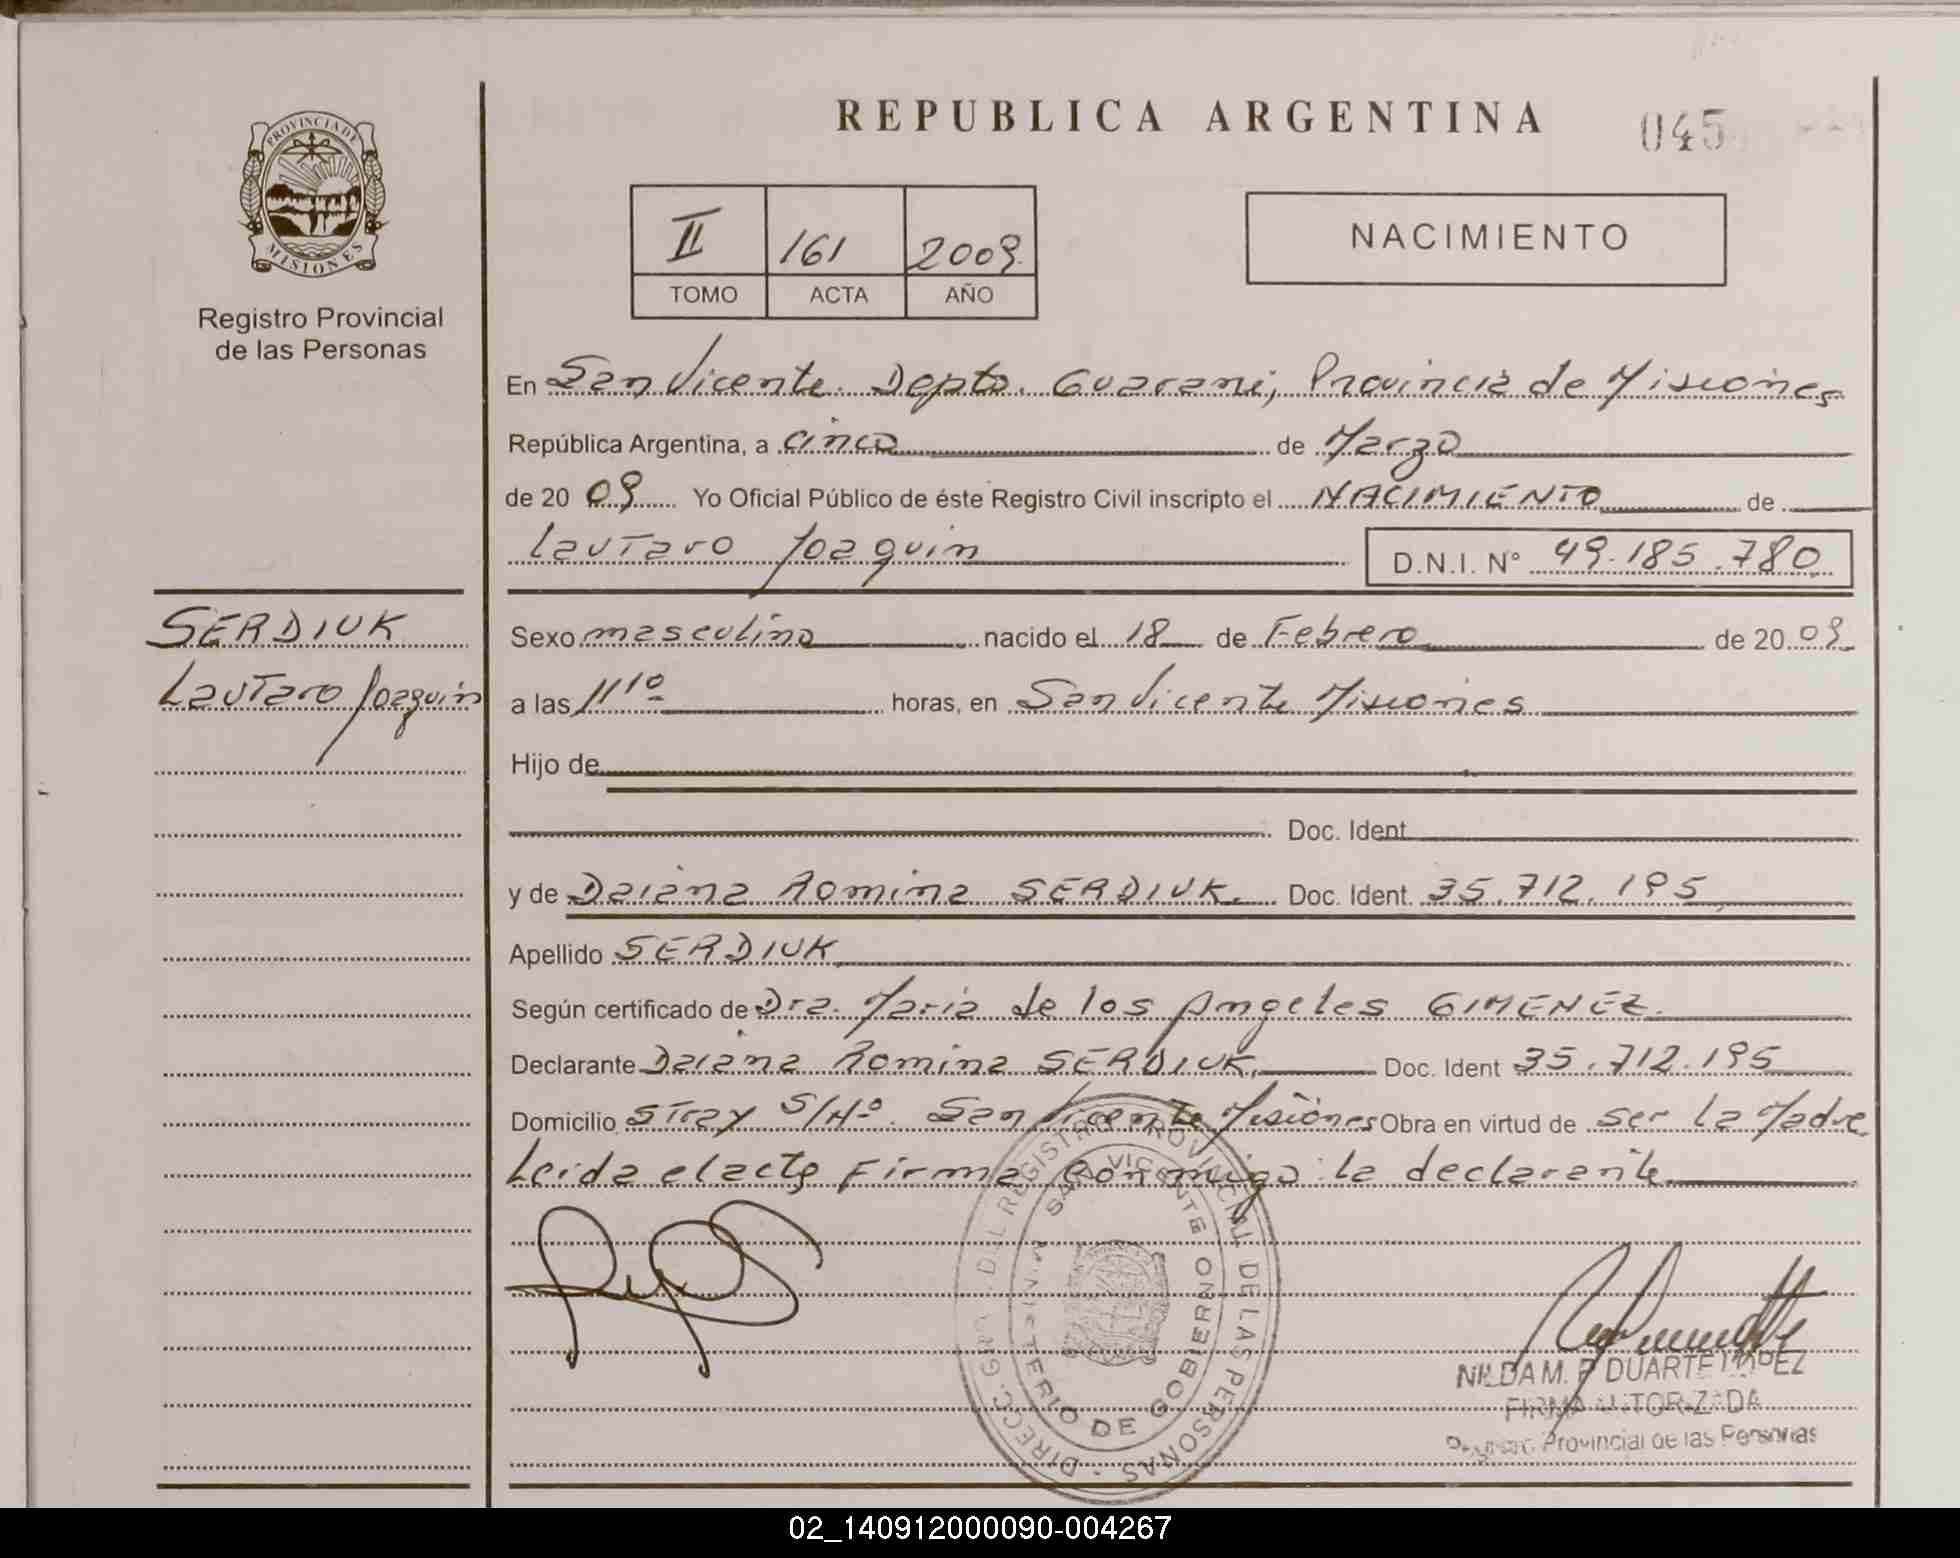 REPUBLICA ARGENTINA
045
PROVINCIA DE
MISIONES
Registro Provincial
de las Personas
II 161 2009
TOMO ACTA AÑO
NACIMIENTO
En San Vicente. Depto. Guarani, Provincia de Misiones
República Argentina, a cinco de Marzo
de 20 09 Yo Oficial Público de éste Registro Civil inscripto el NACIMIENTO de
Lautaro Joaquin D.N.I. N° 49.185.780
SERDIUK
Lautaro Joaquin
Sexo masculino nacido el 18 de Febrero de 20 09
a las 11 10 horas, en San Vicente Misiones
Hijo de
Doc. Ident.
y de Daiana Romina SERDIUK. Doc. Ident. 35.712.195
Apellido SERDIUK
Según certificado de Dra. Maria de los Angeles GIMENEZ.
Declarante Daiana Romina SERDIUK. Doc. Ident 35.712.195
Domicilio Stray S/Nº. San Vicente Misiones Obra en virtud de ser la Madre
Leida el acta Firma conmigo la declarante
DIRECC. GRAL. DEL REGISTRO PROVINCIAL DE LAS PERSONAS
SAN VICENTE
MINISTERIO DE GOBIERNO
NILDA M. DUARTE LOPEZ
FIRMA AUTORIZADA
Registro Provincial de las Personas
02_140912000090-004267